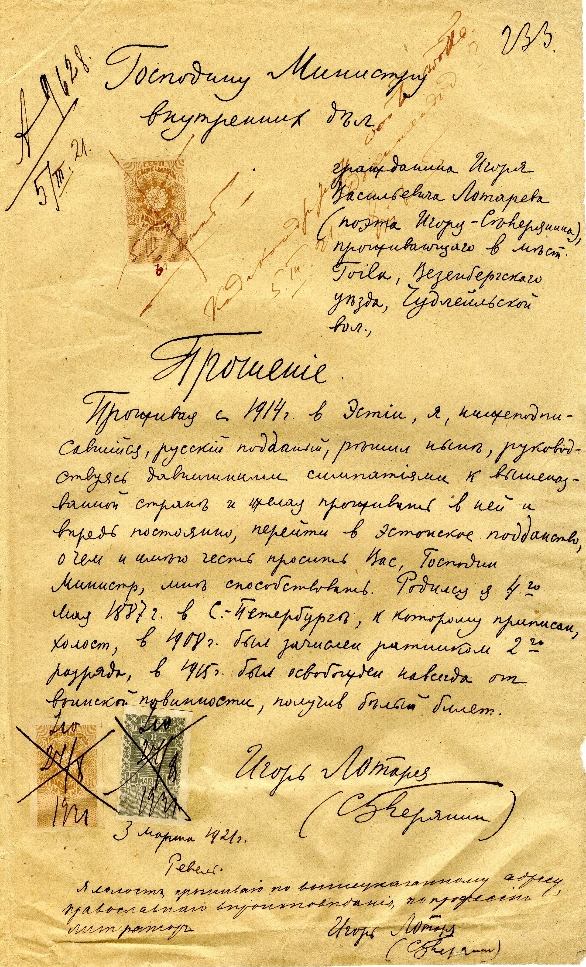 233.
А 9628.
5/III. 21.
Господину Министру
внутренних дѣл
гражданина Игоря
Васильевича Лотарева
(поэта Игорь-Сѣверянина),
проживающаго в мѣст.
Toila, Везенбергскаго
уѣзда, Чудлейльской
вол.,
5. III.
Прошенiе.
Проживая с 1914 г. в Эстiи, я, нижеподпи-
савшiйся, русскiй подданный, рѣшил нынѣ, руковод-
ствуясь давнишними симпатiями к вышеназ-
ванной странѣ и желая проживать в ней и
впредь постоянно, перейти в Эстонское подданство,
о чем и имѣю честь просить Вас, Господин
Министр, мнѣ способствовать. Родился я 4го
мая 1887 г. в С.-Петербургѣ, к которому приписан,
холост, в 1908 г. был зачислен ратником 2го
разряда, в 1915 г. был освобожден навсегда от
воинской повинности, получив бѣлый билет.
27/8
1921
10 MARKA
27/8
1921
Игорь Лотарев
(Сѣверянин)
3 марта 1921 г.
Ревель.
Я холост, проживаю по вышеуказанному адресу,
православнаго вѣроисповѣданiя, по профессiи
литератор
Игорь Лотарев
(Сѣверянин)